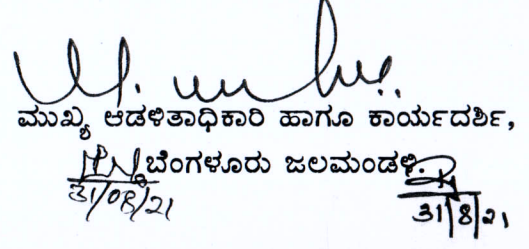 ಮುಖ್ಯ ಆಡಳಿತಾಧಿಕಾರಿ ಹಾಗೂ ಕಾರ್ಯದರ್ಶಿ,
ಬೆಂಗಳೂರು ಜಲಮಂಡಳಿ.
31/08/21
31/8/21